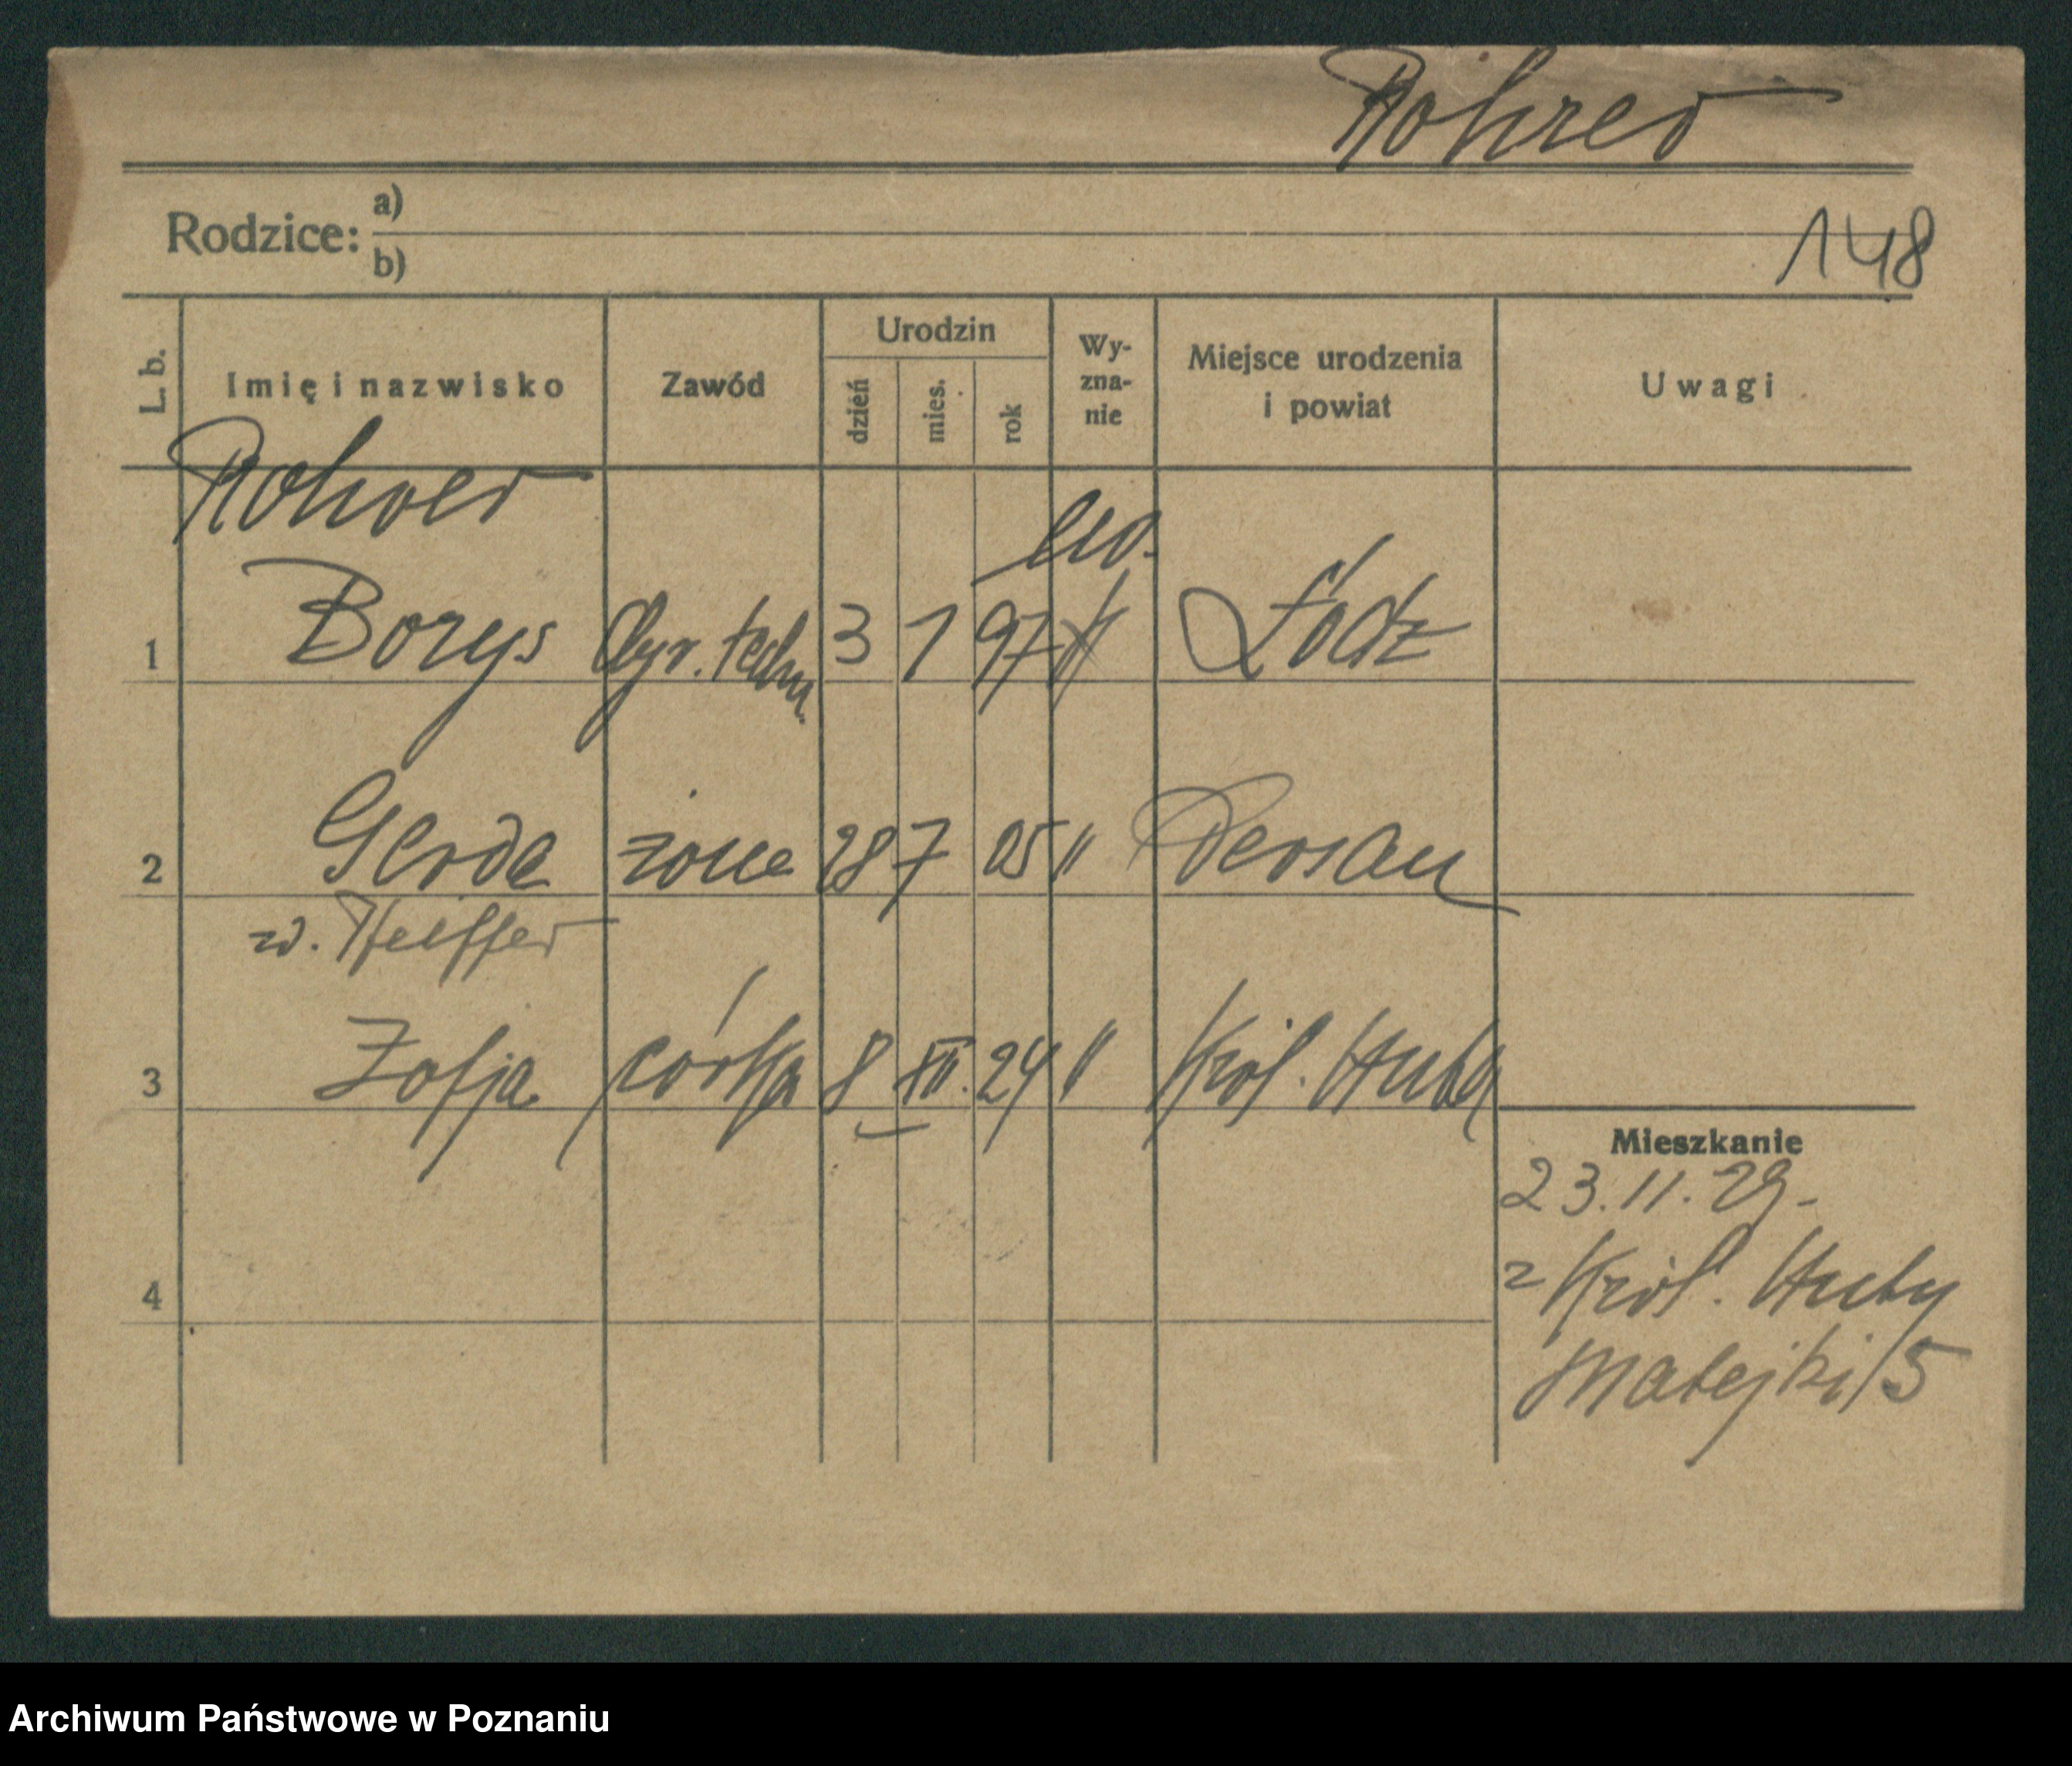 Rohrer
Rodzice: a)
b)
148
L. b. Imię i nazwisko Zawód Urodzin dzień mies. rok Wy-zna-nie Miejsce urodzenia i powiat Uwagi
Rohrer
1 Borys dyr. techn. 3 1 97 Łódz
2 Gerda żona 28 7 05 "
z d. Pfeiffer
3 Zofja córka 8 XII. 24 " Król. Huta
Mieszkanie
23.11.29.
z Król. Huty
Matejki 5
4
Archiwum Państwowe w Poznaniu